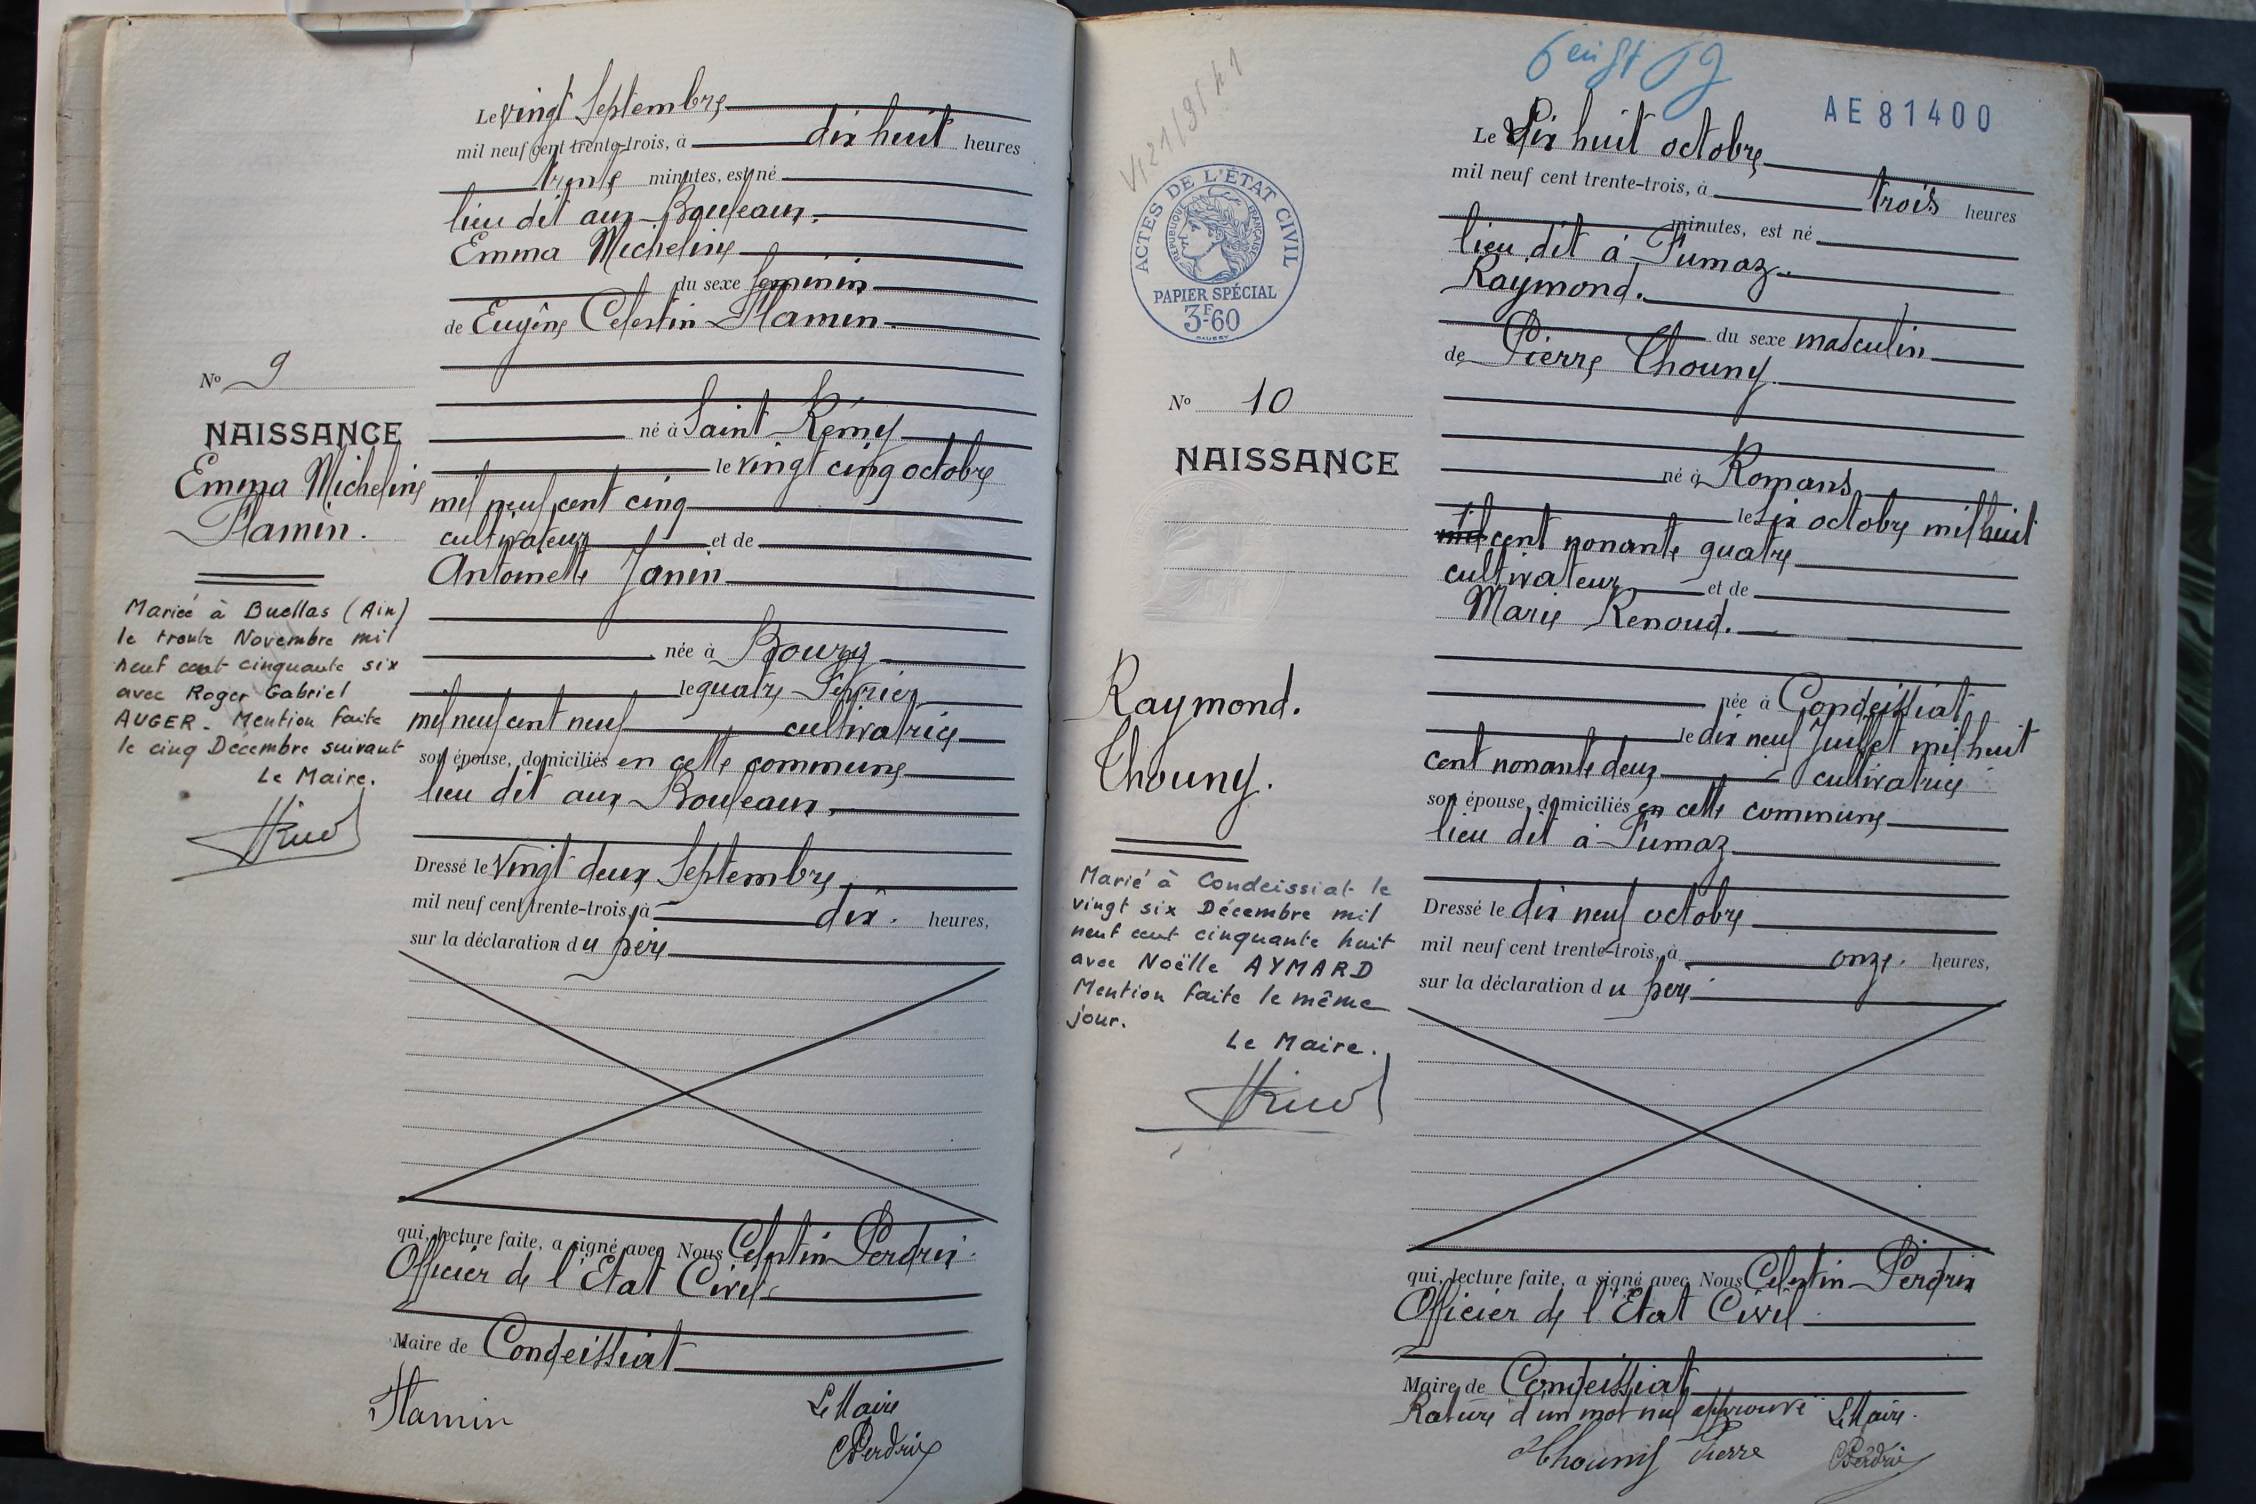 Le vingt Septembre
mil neuf cent trente-trois, à dix huit heures
trente minutes, est né
lieu dit aux Bouleaux.
Emma Micheline
du sexe féminin
de Eugène Celestin Flamin.
né à Saint Rémy
le vingt cinq octobre
mil neuf cent cinq
cultivateur et de
Antoinette Janin
née à Bourg
le quatre Février
mil neuf cent neuf cultivatrice
son épouse, domiciliés en cette commune
lieu dit aux Bouleaux.
Dressé le vingt deux Septembre
mil neuf cent trente-trois, à dix. heures,
sur la déclaration du père
qui, lecture faite, a signé avec Nous Celestin Perdrix
Officier de l'Etat Civil
Maire de Condeissiat
Flamin
Le Maire
CPerdrix
No 9
NAISSANCE
Emma Micheline
Flamin.
Mariée à Buellas (Ain)
le trente Novembre mil
neuf cent cinquante six
avec Roger Gabriel
AUGER. Mention faite
le cinq Décembre suivant
Le Maire.
AE 81400
ACTES DE L'ÉTAT CIVIL
RÉPUBLIQUE FRANÇAISE
PAPIER SPÉCIAL
3F-60
No 10
NAISSANCE
Raymond.
Thouny.
Marié à Condeissiat le
vingt six Décembre mil
neuf cent cinquante huit
avec Noëlle AYMARD
Mention faite le même
jour.
Le Maire.
Le Dix huit octobre
mil neuf cent trente-trois, à trois heures
minutes, est né
lieu dit à Fumaz.
Raymond.
du sexe masculin
de Pierre Thouny.
né à Romans
le six octobre mil huit
mil cent nonante quatre
cultivateur et de
Marie Renoud.
née à Condeissiat
le dix neuf Juillet mil huit
cent nonante deux cultivatrice
son épouse, domiciliés en cette commune
lieu dit à Fumaz
Dressé le dix neuf octobre
mil neuf cent trente-trois, à onze. heures,
sur la déclaration du père
qui, lecture faite, a signé avec Nous Celestin Perdrix
Officier de l'Etat Civil
Maire de Condeissiat
Rature d'un mot nul approuvé Le Maire.
Thouny Pierre
CPerdrix